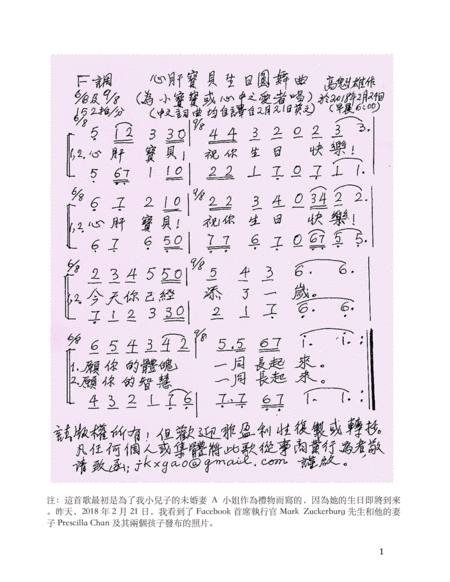 F調 心肝寶貝生日圓舞曲
6/8及9/8 (為小寶寶或心中之愛者唱)
152拍/分
6/8 9/8
5 12 3 30 4 4 3 2 0 2 3 3.
1,2.心肝 寶貝! 祝你生日 快樂!
5 67 1 10 2 2 1 7 0 7 1 1.
6/8 9/8
6 7 2 10 2 2 3 4 0 34 2 2.
1,2.心肝 寶貝! 祝你生日 快樂!
6 7 6 50 7 7 6 7 0 67 5 5.
6/8 9/8
2 3 4 5 50 5 4 3 6. 6.
1,2.今天你已經 添了一 歲。
7 1 2 3 30 2 1 7 6. 6.
6/8 9/8
6 5 4 3 42 5.5 67 1. 1.
1.願你的體魄 一同長起來。
2.願你的智慧 一同長起來。
4 3 2 1 76 7.7 67 1. 1.
註:版權所有!但歡迎非盈利性復製或轉抄。
凡任何個人或集體將此歌從事商業行為者敬
請致函:jkxgao@gmail.com 謹啟。
注:這首歌最初是為了我小兒子的未婚妻 A 小姐作為禮物而寫的,因為她的生日即將到來
。昨天,2018 年 2 月 21 日,我看到了 Facebook 首席執行官 Mark Zuckerburg 先生和他的妻
子 Prescilla Chan 及其兩個孩子發布的照片。
1